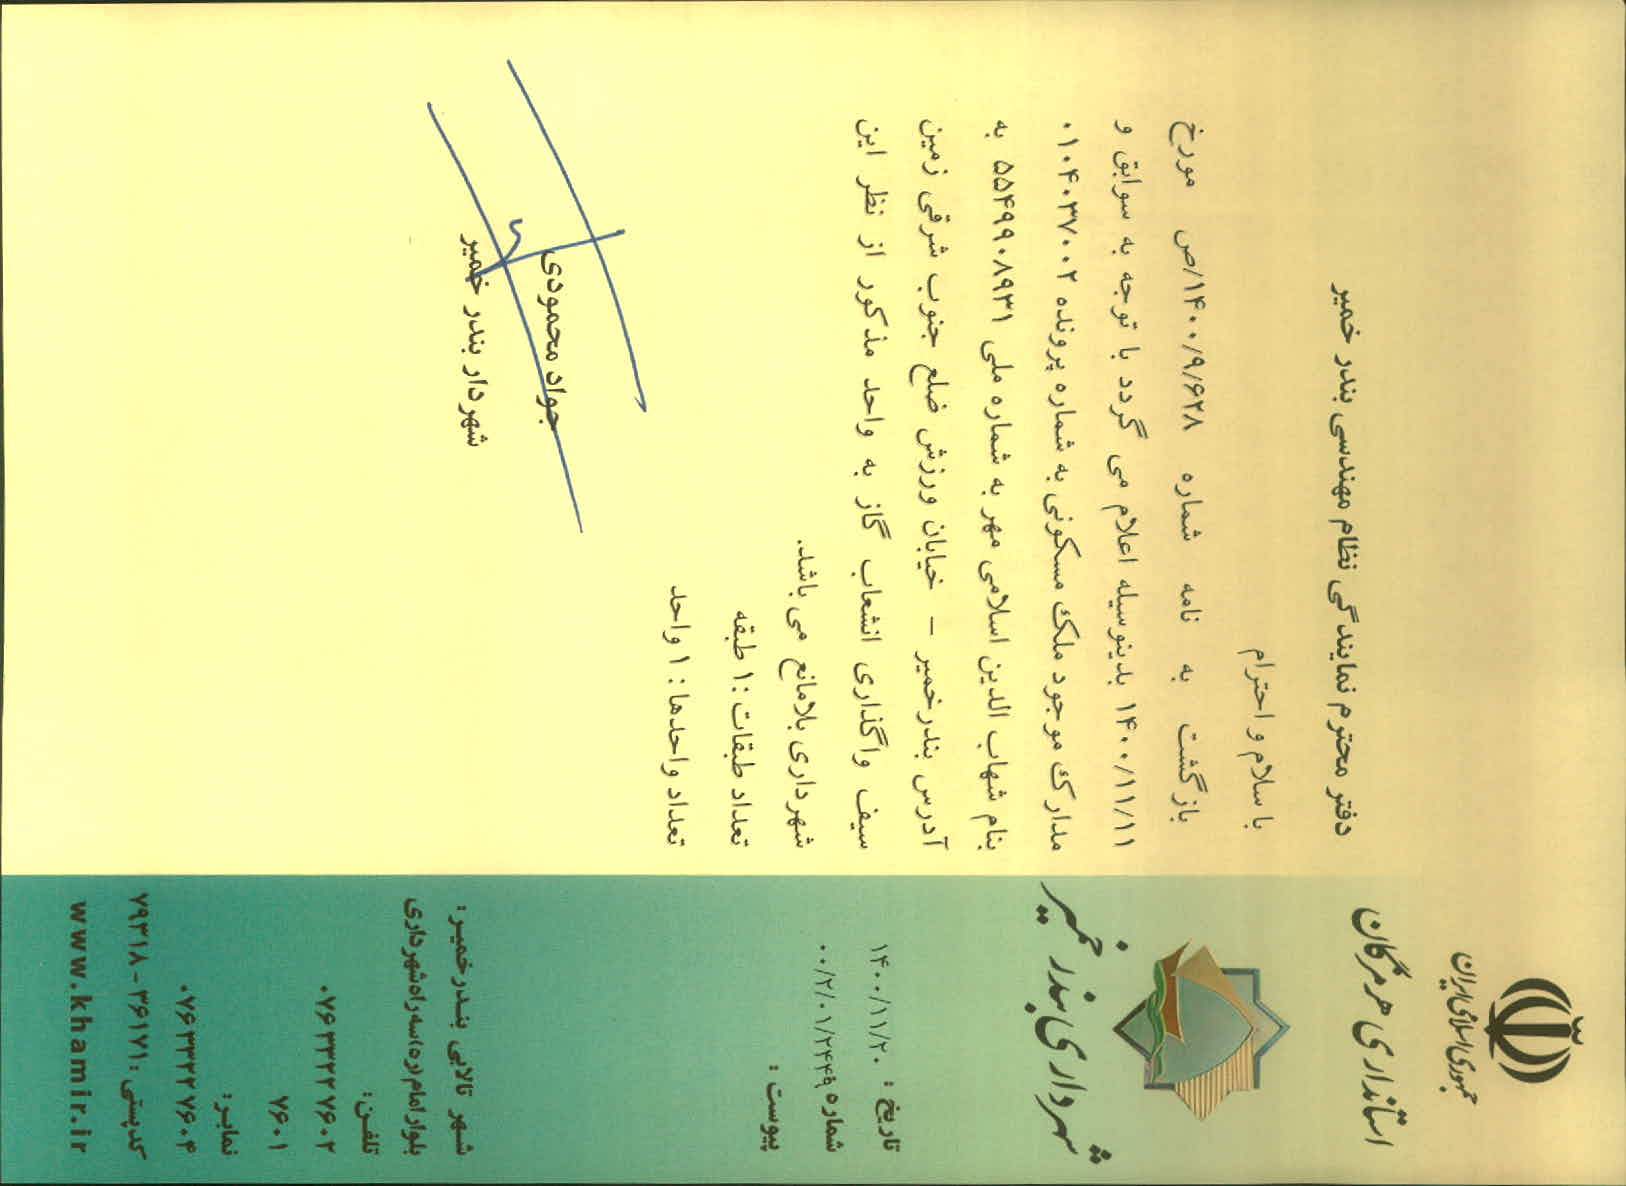 جمهوری اسلامی ایران
استانداری هرمزگان
شهرداری بندر خمیر
تاریخ : ۱۴۰۰/۱۱/۲۰
شماره ۰۰/۲/۰۱/۲۴۴۹
پیوست :
دفتر محترم نمایندگی نظام مهندسی بندر خمیر
با سلام و احترام
بازگشت به نامه شماره ۱۴۰۰/۹/۶۲۸/ص مورخ
۱۴۰۰/۱۱/۱۱ بدینوسیله اعلام می گردد با توجه به سوابق و
مدارک موجود ملک مسکونی به شماره پرونده ۰۱۰۴۰۳۷۰۰۲
بنام شهاب الدین اسلامی مهر به شماره ملی ۵۵۴۹۹۰۸۹۳۱ به
آدرس بندرخمیر – خیابان ورزش ضلع جنوب شرقی زمین
سیف واگذاری انشعاب گاز به واحد مذکور از نظر این
شهرداری بلامانع می باشد.
تعداد طبقات :۱ طبقه
تعداد واحدها : ۱ واحد
جواد محمودی
شهردار بندر خمیر
شهر تالابی بندرخمیر:
بلوار امام (ره) سه راه شهرداری
تلفن:
۰۷۶۳۳۲۲۷۶۰۲
۷۶۰۱
نمابر:
۰۷۶۳۳۲۲۷۶۰۴
کدپستی: ۳۶۱۷۱ - ۷۹۳۱۸
www.khamir.ir